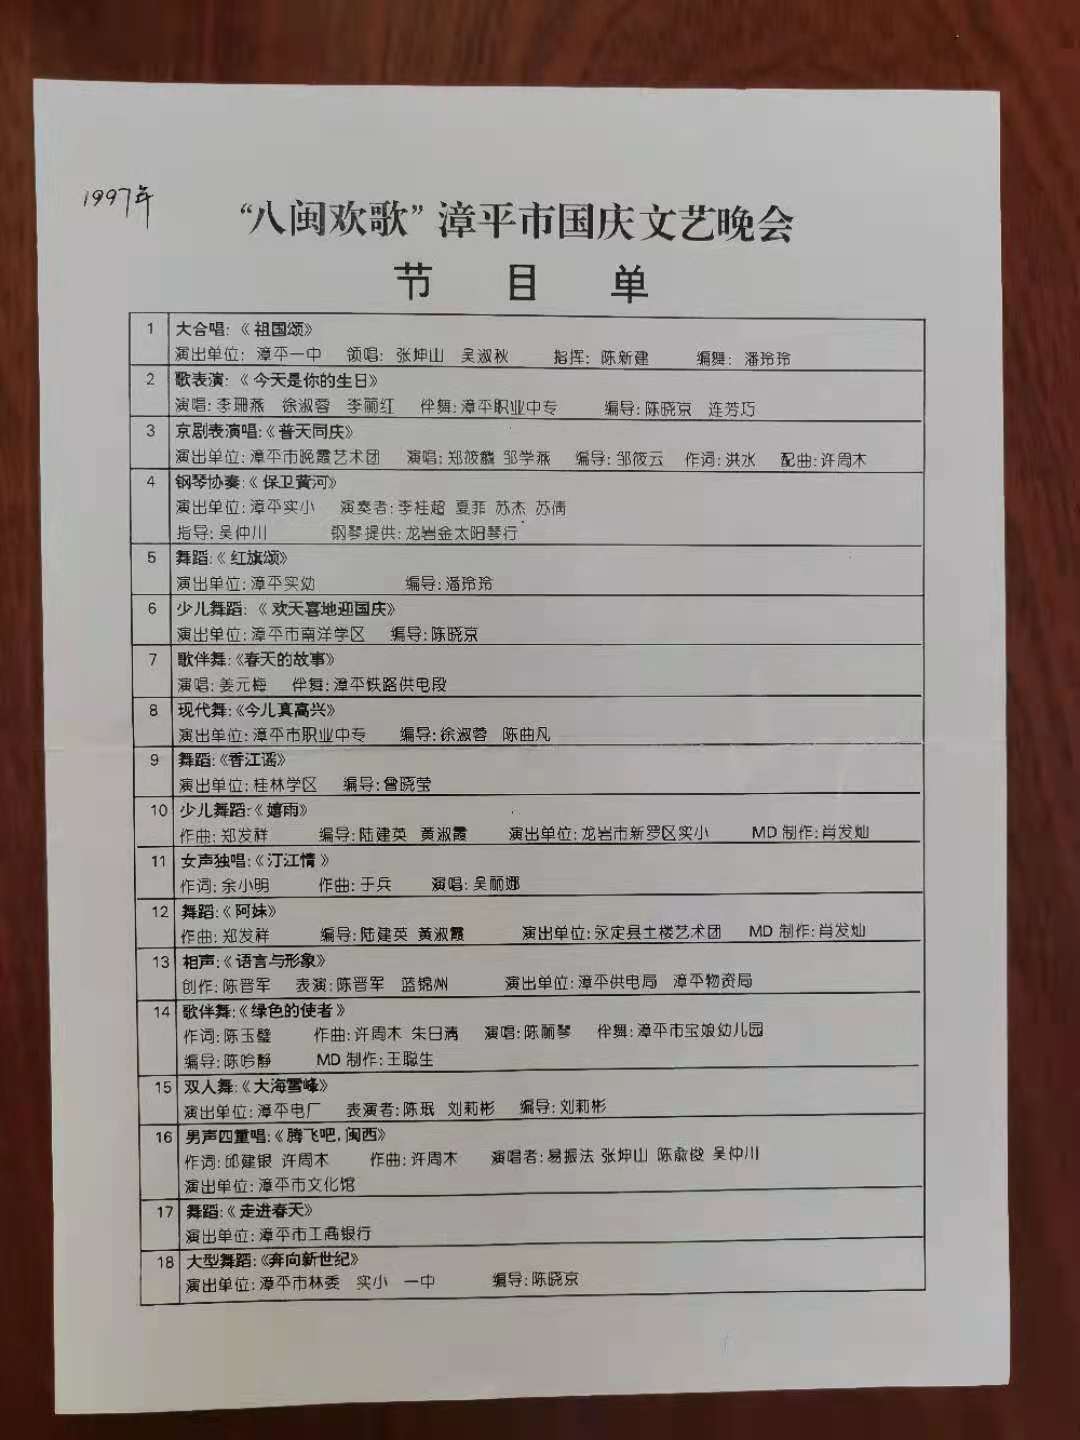 1997年
“八闽欢歌”漳平市国庆文艺晚会
节 目 单
1 大合唱:《祖国颂》
演出单位: 漳平一中 领唱: 张坤山 吴淑秋 指挥: 陈新建 编舞: 潘玲玲
2 歌表演:《今天是你的生日》
演唱:李珊燕 徐淑蓉 李丽红 伴舞:漳平职业中专 编导:陈晓京 连芳巧
3 京剧表演唱:《普天同庆》
演出单位:漳平市晚霞艺术团 演唱:郑筱麟 邹学燕 编导:邹筱云 作词:洪水 配曲:许周木
4 钢琴协奏:《保卫黄河》
演出单位:漳平实小 演奏者:李桂超 夏菲 苏杰 苏倩
指导:吴仲川 钢琴提供:龙岩金太阳琴行
5 舞蹈:《红旗颂》
演出单位:漳平实幼 编导:潘玲玲
6 少儿舞蹈:《欢天喜地迎国庆》
演出单位:漳平市南洋学区 编导:陈晓京
7 歌伴舞:《春天的故事》
演唱:姜元梅 伴舞:漳平铁路供电段
8 现代舞:《今儿真高兴》
演出单位:漳平市职业中专 编导:徐淑蓉 陈曲凡
9 舞蹈:《香江谣》
演出单位:桂林学区 编导:曾晓莹
10 少儿舞蹈:《嬉雨》
作曲:郑发祥 编导:陆建英 黄淑霞 演出单位:龙岩市新罗区实小 MD 制作:肖发灿
11 女声独唱:《汀江情》
作词:余小明 作曲:于兵 演唱:吴丽娜
12 舞蹈:《阿妹》
作曲:郑发祥 编导:陆建英 黄淑霞 演出单位:永定县土楼艺术团 MD 制作:肖发灿
13 相声:《语言与形象》
创作:陈晋军 表演:陈晋军 蓝锦州 演出单位:漳平供电局 漳平物资局
14 歌伴舞:《绿色的使者》
作词:陈玉璧 作曲:许周木 朱日清 演唱:陈丽琴 伴舞:漳平市宝娘幼儿园
编导:陈吟静 MD 制作:王聪生
15 双人舞:《大海雪峰》
演出单位:漳平电厂 表演者:陈珉 刘莉彬 编导:刘莉彬
16 男声四重唱:《腾飞吧,闽西》
作词:邱建银 许周木 作曲:许周木 演唱者:易振法 张坤山 陈俞俊 吴仲川
演出单位:漳平市文化馆
17 舞蹈:《走进春天》
演出单位:漳平市工商银行
18 大型舞蹈:《奔向新世纪》
演出单位:漳平市林委 实小 一中 编导:陈晓京